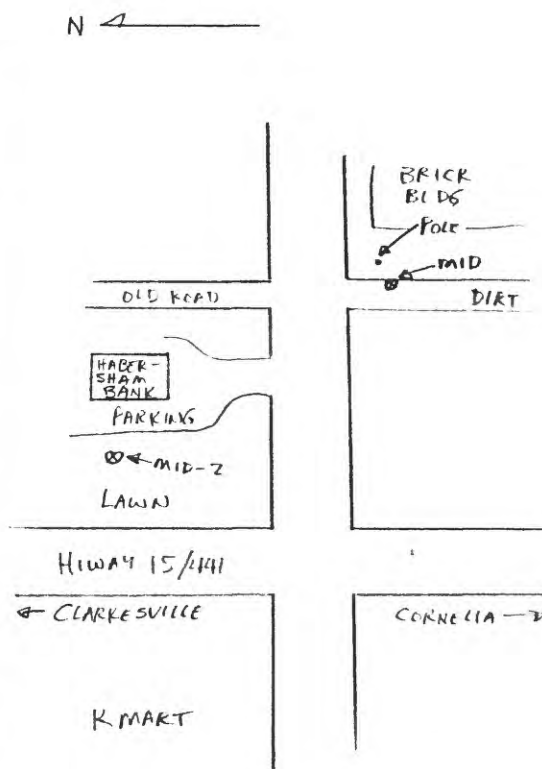 N
BRICK
BLDG
POLE
MID
OLD ROAD
DIRT
HABER-
SHAM
BANK
PARKING
MID-2
LAWN
HIWAY 15/441
CLARKESVILLE
CORNELIA
K MART